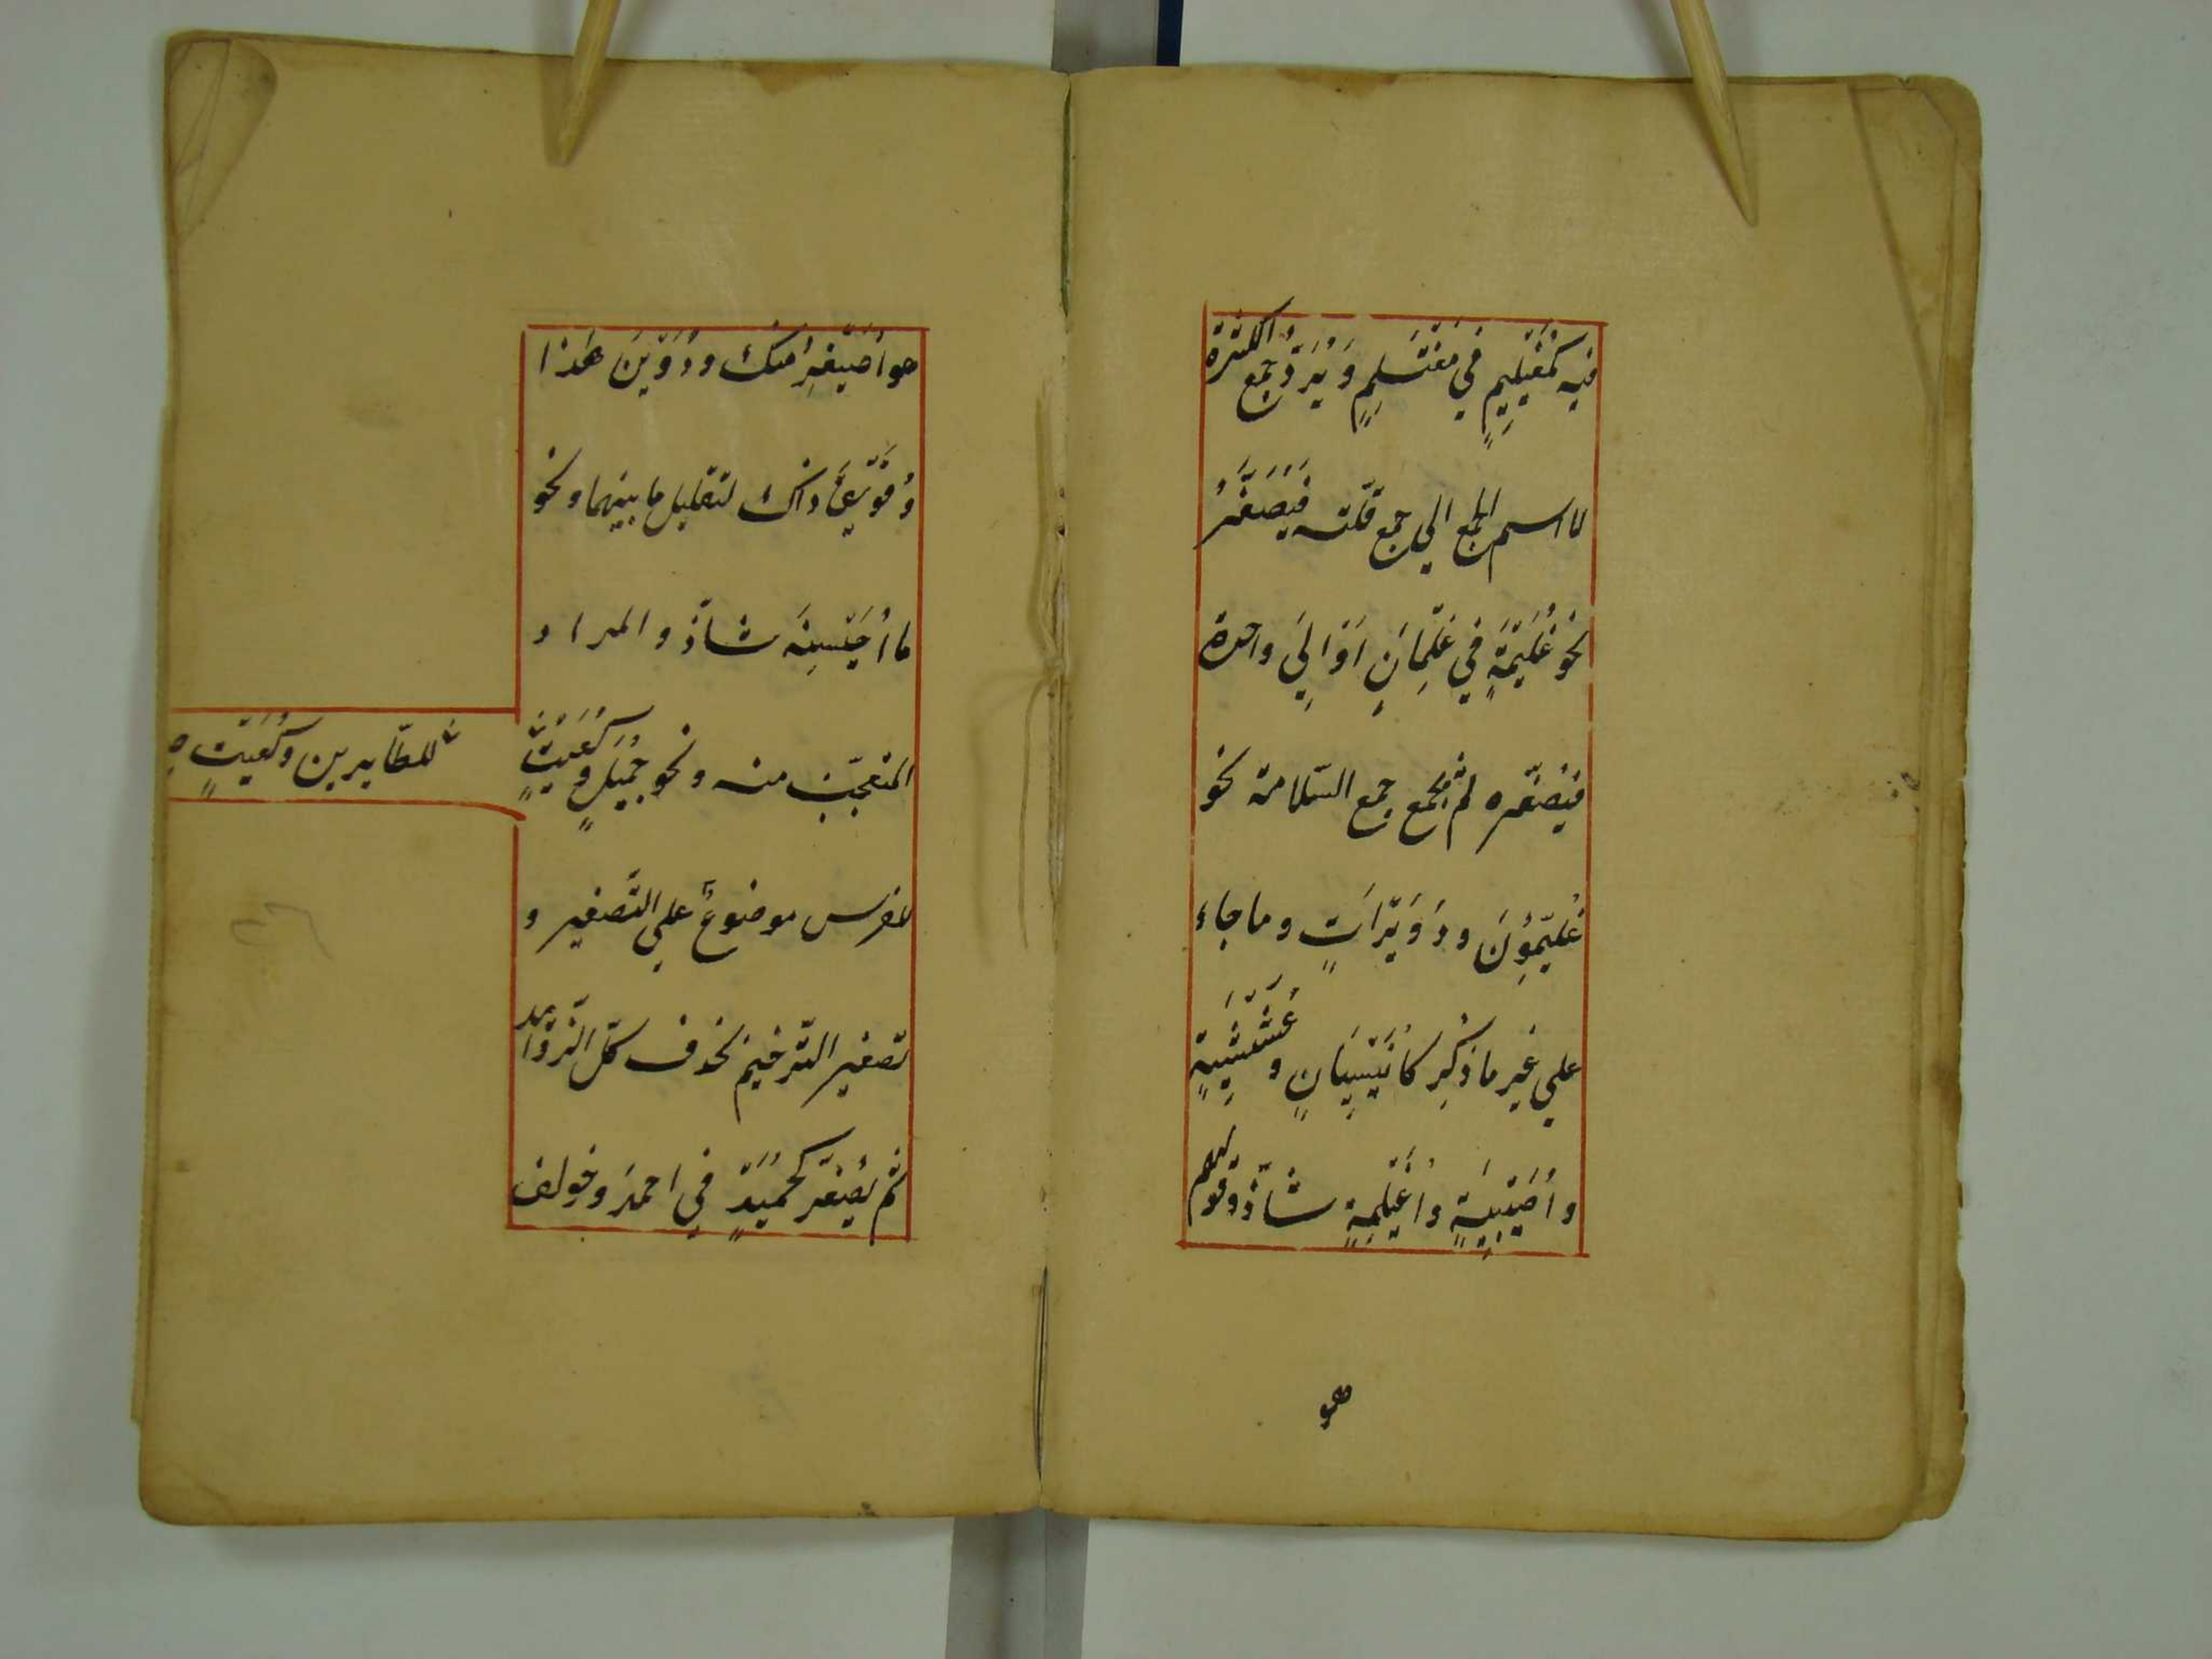 فيه كمُغَيْلِيمٍ في مُغْتَلِمٍ وَيُرَدُّ جمع الكثرة
لا اسم الجمع الي جمع قلّته فَيُصَغَّرُ
نحو غُلَيْمَةٍ في غِلْمَانٍ اَوْ اِلَي واحده
فيُصَغّره ثم يجمع جمع السّلامة نحو
غُلَيّمُونَ ودُوَيْرَاتٍ وما جاء
علي غير ما ذُكِر كاُنَيْسِيَانٍ وعُشَيْشِيَةٍ
واُصَيْبِيَةٍ واُغَيْلِمَةٍ شاذّ وقولهم
هو
هو اُصَيْغِرُ منك ودُوَيْنَ هَذا
وفُوَيْقَ ذاك لتقليل ما بينهما ونحو
ما اُحَيْسِنَه شاذّ والمراد
المتعجّب منه ونحو جُمَيْلٍ وكُعَيْتٍ
للطّايرين وكُمَيْتٍ
للفرس موضوعٌ علي التّصغير و
تصغير التّرخيم بحذف كلّ الزّوائد
ثم يُصغّر كحُمَيْدٍ في احمدَ وخولف